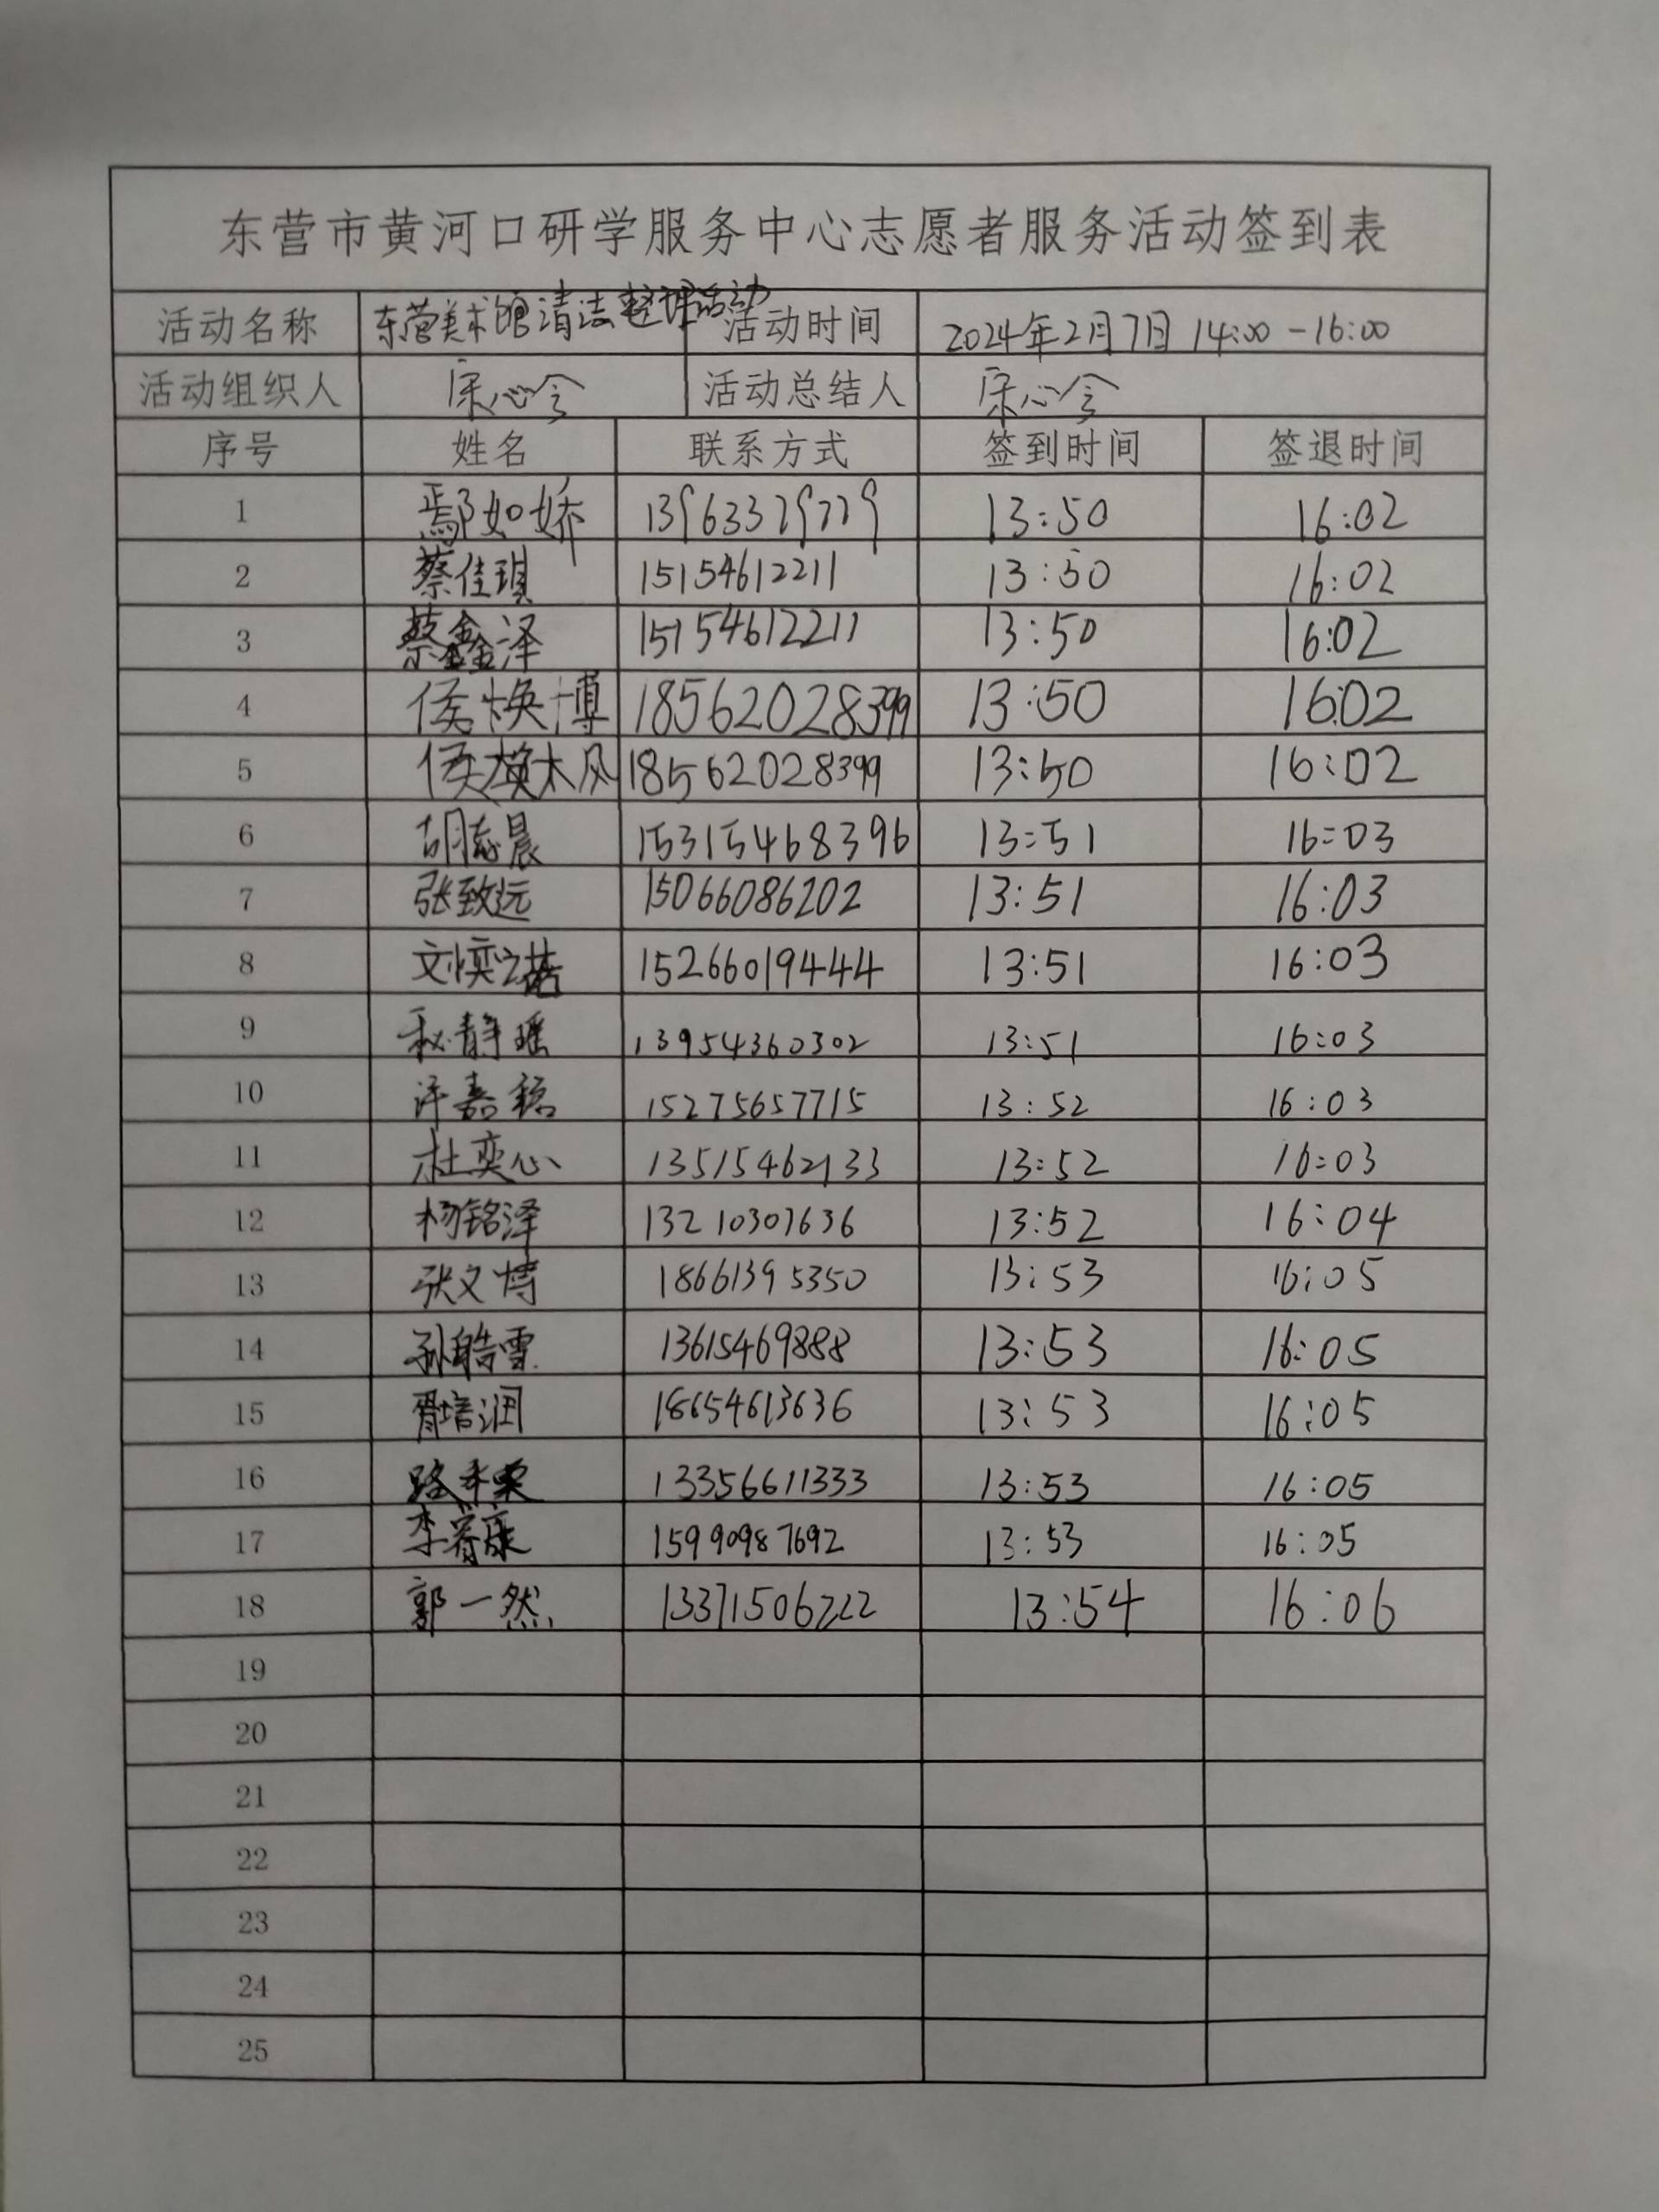 东营市黄河口研学服务中心志愿者服务活动签到表
活动名称 东营美术馆清洁整理活动 活动时间 2024年2月7日 14:00-16:00
活动组织人 宋心令 活动总结人 宋心令
序号 姓名 联系方式 签到时间 签退时间
1 鄢如娇 13:50 16:02
2 蔡佳琪 15154612211 13:50 16:02
3 蔡鑫泽 15154612211 13:50 16:02
4 侯焕博 18562028399 13:50 16:02
5 18562028399 13:50 16:02
6 胡志晨 15315468396 13:51 16:03
7 张致远 15066086202 13:51 16:03
8 15266019444 13:51 16:03
9 秘静瑶 13954360302 13:51 16:03
10 15275657715 13:52 16:03
11 杜奕心 13515462133 13:52 16:03
12 杨铭泽 13210307636 13:52 16:04
13 张文博 18661395350 13:53 16:05
14 孙皓雪 13615469888 13:53 16:05
15 18654613636 13:53 16:05
16 13356611333 13:53 16:05
17 15990987692 13:53 16:05
18 郭一然 13371506222 13:54 16:06
19
20
21
22
23
24
25